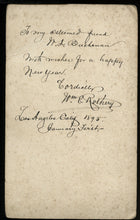 To my esteemed friend
W. A. Buchanan
With wishes for a happy
New Year.
Cordially
Wm C.
Los Angeles Caly. 1895
January First